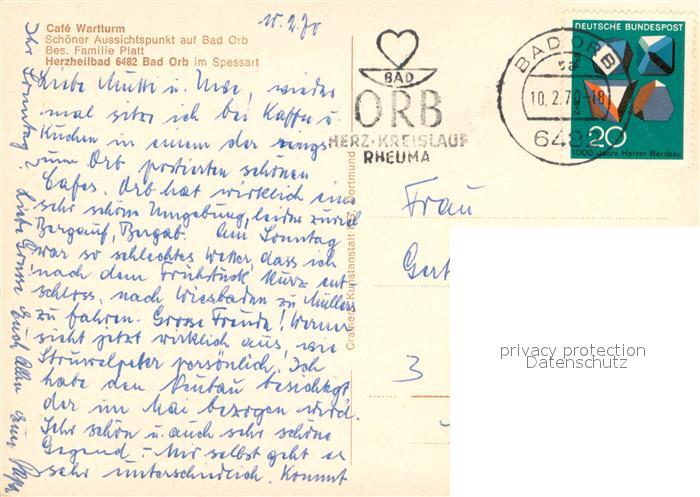 10.2.70
Café Wartturm
Schöner Aussichtspunkt auf Bad Orb
Bes. Familie Platt
Herzheilbad 6482 Bad Orb im Spessart
Liebe Mutti u. Uwe, wieder
mal sitze ich bei Kaffee u.
Kuchen in einem der rings
um Orb postierten schönen
Cafes. Orb hat wirklich eine
sehr schöne Umgebung, leider zuviel
Bergauf, Bergab. Am Sonntag
war so schlechtes Wetter, dass ich
nach dem Frühstück kurz ent-
schloss, nach Wiesbaden zu Müllers
zu fahren. Grosse Freude! Werner
sieht jetzt wirklich aus, wie
Struwelpeter persönlich. Ich
habe den Neubau besichtigt
der im Mai bezogen wird.
Sehr schön u. auch sehr schöne
Gegend. - Mir selbst geht es
sehr unterschiedlich. Kommt
Ihr Sonntag? Liebe Grüsse Euch Allen Euer Papa
BAD
ORB
HERZ-KREISLAUF
RHEUMA
BAD ORB
10.2.70-18
6482
DEUTSCHE BUNDESPOST
20
1000 Jahre Harzer Bergbau
Frau
Gert
3
privacy protection
Datenschutz